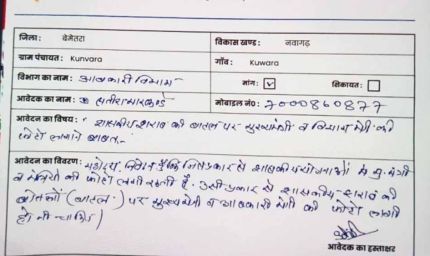 जिला: बेमेतरा विकास खण्ड: नवागढ़
ग्राम पंचायत: Kunvara गाँव: Kuwara
विभाग का नाम: आबकारी विभाग मांग: ☑ शिकायत: ☐
आवेदक का नाम: मोबाइल नं०: 7000860877
आवेदन का विषय: शासकीय शराब की बातल पर मुख्यमंत्री व विभाग मंत्री की
फोटो लगाने बाबत
आवेदन का विवरण: महोदय, निवेदन है कि जिस प्रकार से शासकीय योजनाओं में मु.मंत्री
व मंत्रियों की फोटो लगी रहती है. उसी प्रकार से शासकीय शराब की
बोतलों (बातल) पर मुख्यमंत्री व आबकारी मंत्री की फोटो लगानी
होनी चाहिए
आवेदक का हस्ताक्षर